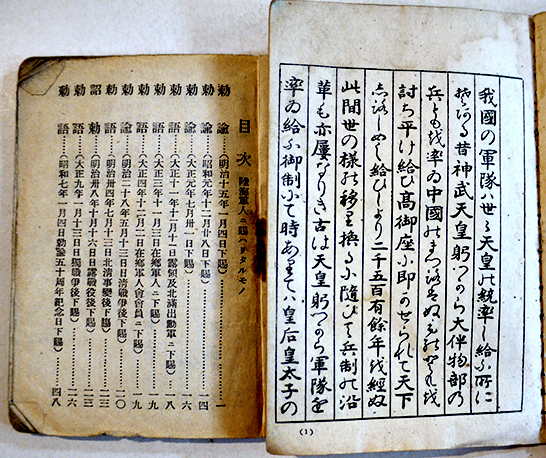 我國の軍隊ハ世々天皇の統率し給ふ所に
そある昔神武天皇躬つから大伴物部の
兵ともを率ゐ中國のまつろはぬものともを
討ち平け給ひ髙御座に即かせられて天下
しろしめし給ひしより二千五百有餘年を經ぬ
此間世の様の移り換るに隨ひて兵制の沿
革も亦屢なりき古は天皇躬つから軍隊を
率ゐ給ふ御制にて時ありてハ皇后皇太子の
(1)
目次 陸海軍人ニ賜ハリタルモノ
勅諭(明治十五年一月四日下賜)……一
勅諭(昭和元年十二月廿八日下賜)……一四
勅語(大正元年七月卅一日下賜)……一六
勅語(大正十一年十一月十一日露領及北滿出動軍ニ下賜)……一八
勅語(大正三年十一月三日在郷軍人ニ下賜)……一九
勅語(大正四年十二月二日在郷軍人會會員ニ下賜)……一九
勅諭(明治二十八年五月十三日日清戰爭後下賜)……二〇
勅語(明治卅四年七月卅七日北清事變後下賜)……二三
詔勅(明治卅八年十月十六日日露戰役後下賜)……二三
勅語(大正九年一月十三日日獨戰爭後下賜)……二六
勅語(昭和七年一月四日勅諭五十周年紀念日下賜)……四八